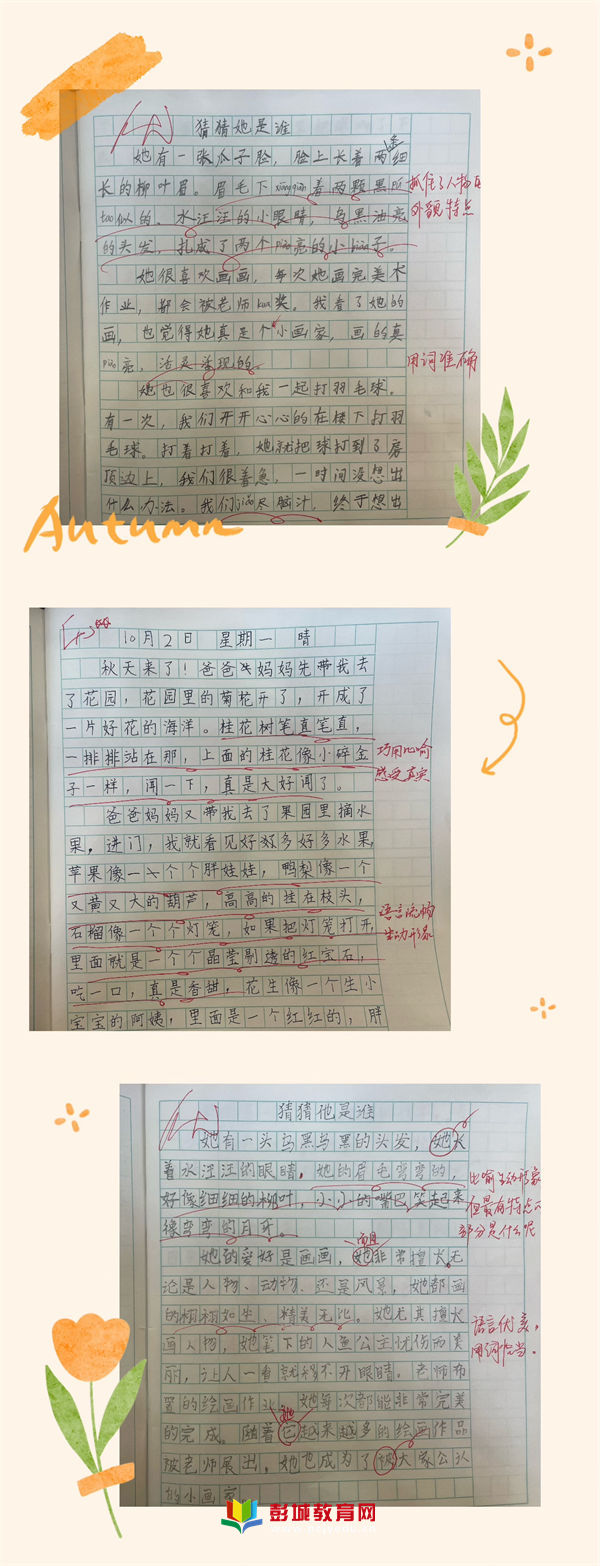 猜猜她是谁
她有一张瓜子脸，脸上长着两道细
长的柳叶眉。眉毛下xiāngqiàn着两颗黑pú
táo似的、水汪汪的小眼睛，乌黑油亮
的头发，扎成了两个piào亮的小biàn子。
抓住了人物的
外貌特点
她很喜欢画画，每次她画完美术
作业，都会被老师kuā奖。我看了她的
画，也觉得她真是个小画家，画的真
piào亮，活灵活现的。
用词准确
她也很喜欢和我一起打羽毛球。
有一次，我们开开心心的在楼下打羽
毛球。打着打着，她就把球打到了房
顶边上，我们很着急，一时间没想出
什么办法。我们jiǎo尽脑汁，终于想出
Autumn
10月2日 星期一 晴
秋天来了！爸爸妈妈先带我去
了花园，花园里的菊花开了，开成了
一片好花的海洋。桂花树笔直笔直，
一排排站在那，上面的桂花像小碎金
子一样，闻一下，真是大好闻了。
巧用比喻
感受真实
爸爸妈妈又带我去了果园里摘水
果，进门，我就看见好多好多水果，
苹果像一个个胖娃娃，鸭梨像一个
又黄又大的葫芦，高高的挂在枝头，
石榴像一个个灯笼，如果把灯笼打开，
里面就是一个个晶莹剔透的红宝石，
吃一口，真是香甜，花生像一个生小
宝宝的阿姨，里面是一个红红的，胖
语言流畅
生动形象
猜猜他是谁
她有一头乌黑乌黑的头发，她长
着水汪汪的眼睛，她的眉毛弯弯的，
好像细细的柳叶，小小的嘴巴笑起来
像弯弯的月牙。
比喻生动形象
但最有特点的
部分是什么呢
她的爱好是画画，而且她非常擅长无
论是人物、动物、还是风景，她都画
的栩栩如生、精美无比。她尤其擅长
画人物，她笔下的人鱼公主忧伤而美
丽，让人一看就移不开眼睛。老师布
置的绘画作业，她每次都能非常完美
的完成。随着她它越来越多的绘画作品
被老师展出，她也成为了被大家公认
的小画家
语言优美，
用词恰当。
彭城教育网